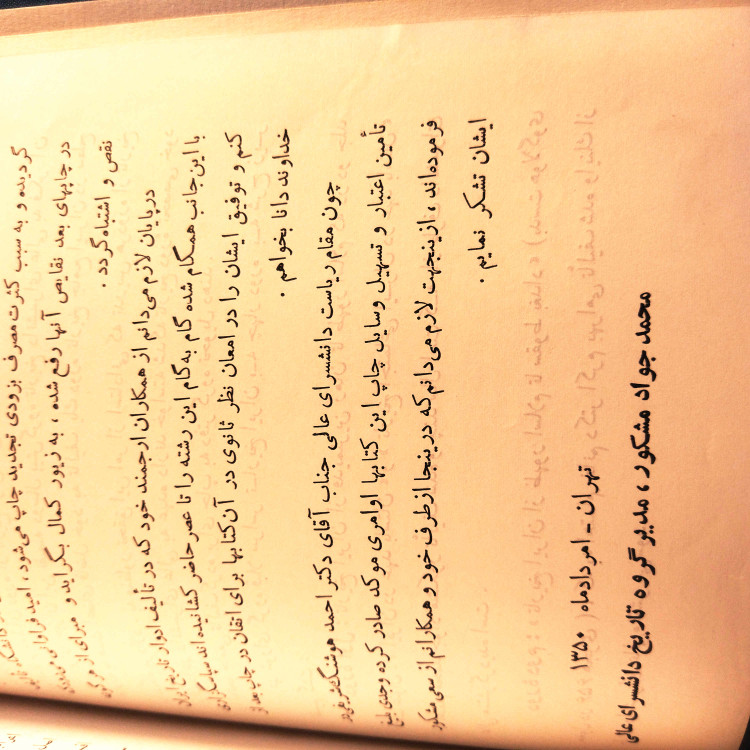 گردیده و به سبب کثرت مصرف بزودی تجدید چاپ می‌شود، امید فراوانی
در چاپهای بعد نقایص آنها رفع شده، به زیور کمال بگراید و مبرای از هر گونه
نقص و اشتباه گردد.
در پایان لازم می‌دانم از همکاران ارجمند خود که در تألیف ادوار تاریخ ایران
با این جانب همگام شده گام به گام این رشته را تا عصر حاضر کشانیده‌اند سپاسگزاری
کنم و توفیق ایشان را در امعان نظر ثانوی در آن کتابها برای اتقان در چاپ بعد از
خداوند دانا بخواهم.
چون مقام ریاست دانشسرای عالی جناب آقای دکتر احمد هوشنگ شریفی در
تأمین اعتبار و تسهیل وسایل چاپ این کتابها اوامری موکد صادر کرده و جدی بلیغ
فرموده‌اند، ازینجهت لازم می‌دانم که درینجا از طرف خود و همکارانم از سعی مشکور
ایشان تشکر نمایم.
تهران - امردادماه ۱۳۵۰
محمد جواد مشکور، مدیر گروه تاریخ دانشسرای عالی